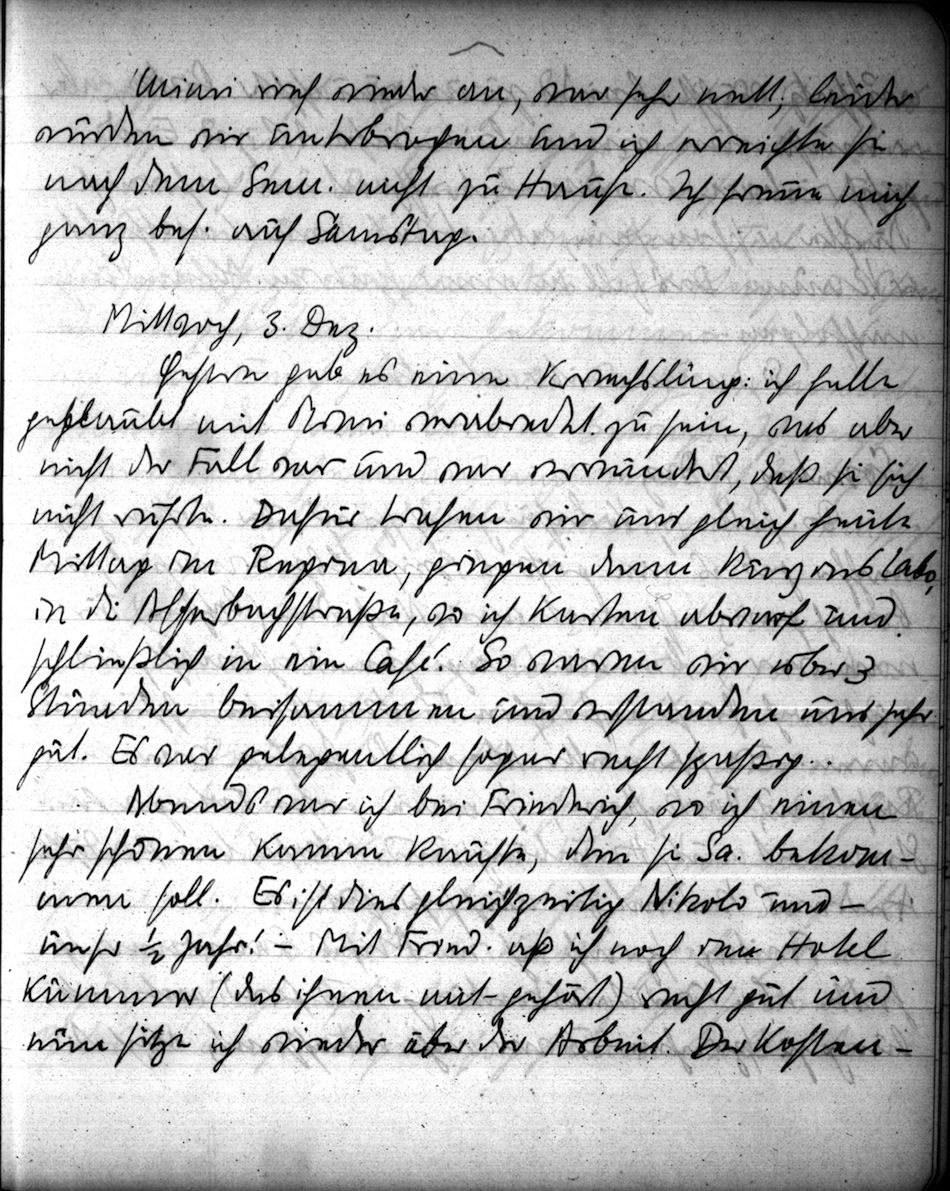 Mimi rief wieder an, war sehr nett, leider
wurden wir unterbrochen und ich erreichte sie
nach dem Sem. nicht zu Hause. Ich freue mich
ganz bes. auf Samstag.
Mittwoch, 3. Dez.
Gestern gab es eine : ich hatte
geglaubt mit Mimi verabredet zu sein, was aber
nicht der Fall war und war verwundet, daß sie sich
nicht rührte. Dafür trafen wir uns gleich heute
Mittag im Regina, gingen dann kurz ins Labo,
in die Alserbachstraße, wo ich Karten abwarf und
schließlich in ein Café. So waren wir über 3
Stunden beisammen und verstanden uns sehr
gut. Es war gelegentlich sogar recht spaßig..
Abends war ich bei Friederich, wo ich einen
sehr schönen Kamm kaufte, den sie Sa. bekom-
men soll. Es ist dies gleichzeitig Nikolo und –
unser ½ Jahr! – Mit Fried. aß ich noch im Hotel
Kummer (das ihnen mit-gehört) recht gut und
nun sitze ich wieder über der Arbeit. Der Kosten-